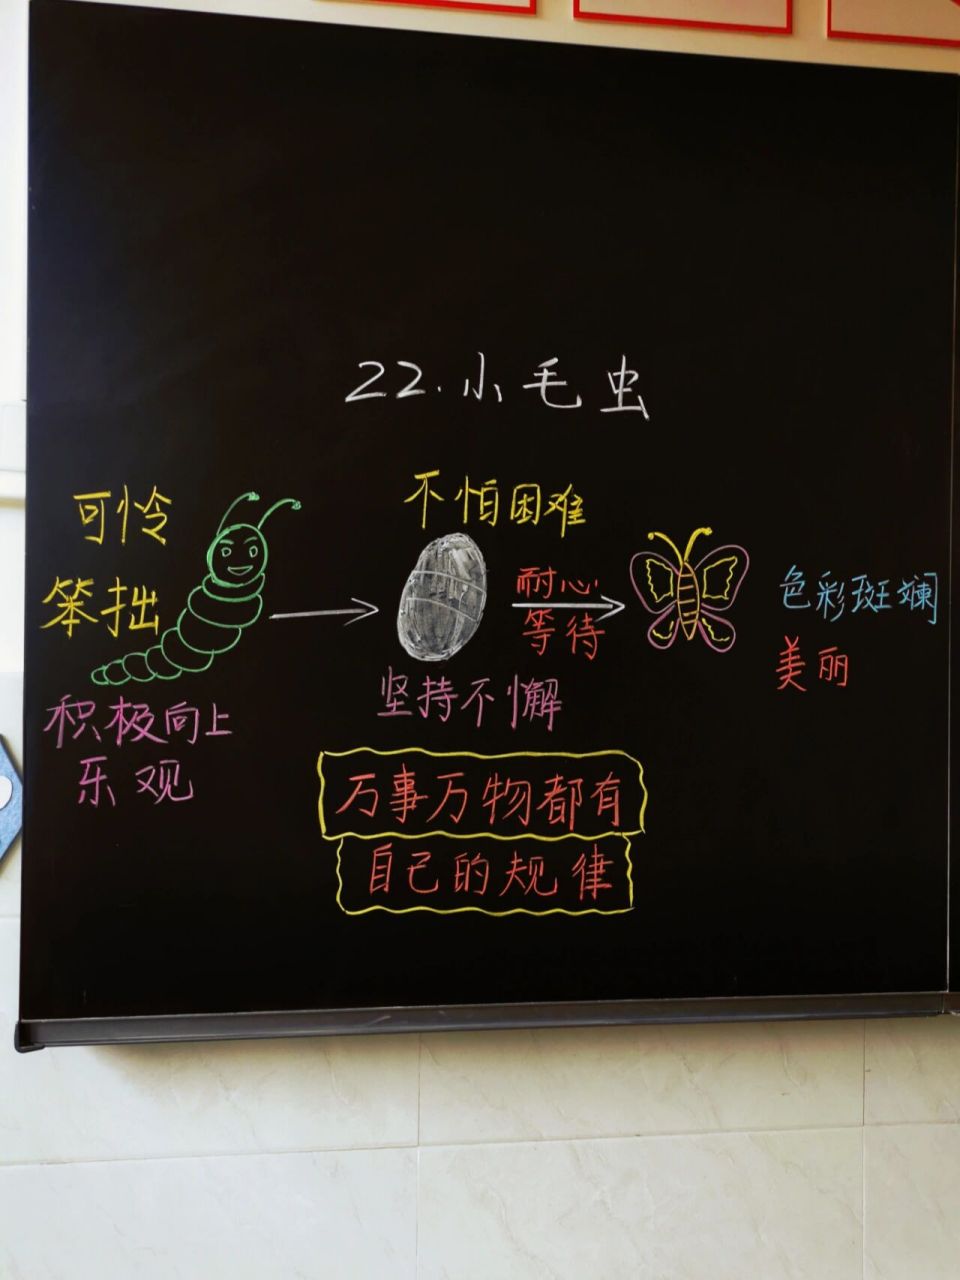 22.小毛虫
可怜
笨拙
积极向上
乐观
不怕困难
坚持不懈
耐心
等待
色彩斑斓
美丽
万事万物都有
自己的规律